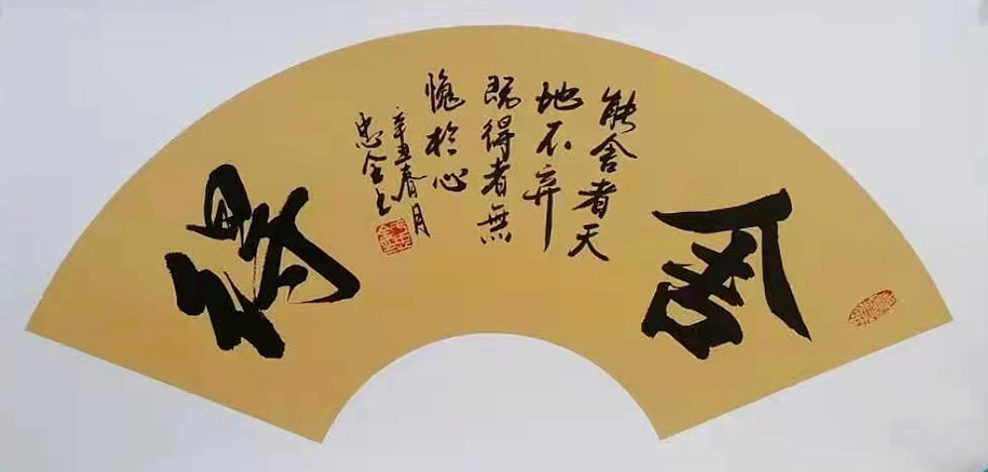 舍得
能舍者天
地不弃
既得者無
愧於心
辛丑春月
忠全书